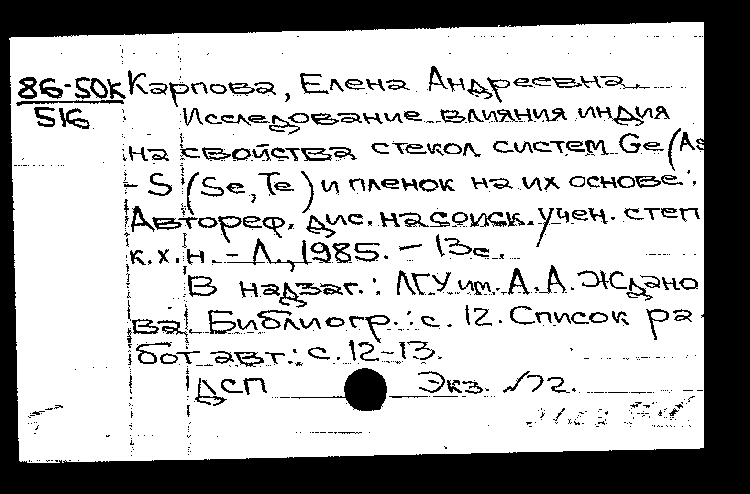 86-50к Карпова, Елена Андреевна.
516 Исследование влияния индия
на свойства стекол систем Ge(As
- S (Se, Te) и пленок на их основе.:
Автореф. дис. на соиск. учен. степ
к.х.н. - Л., 1985. - 13с.
В надзаг.: ЛГУ им. А.А. Ждано
ва. Библиогр.: с. 12. Список ра-
бот авт.: с. 12-13.
ДСП Экз. №72.